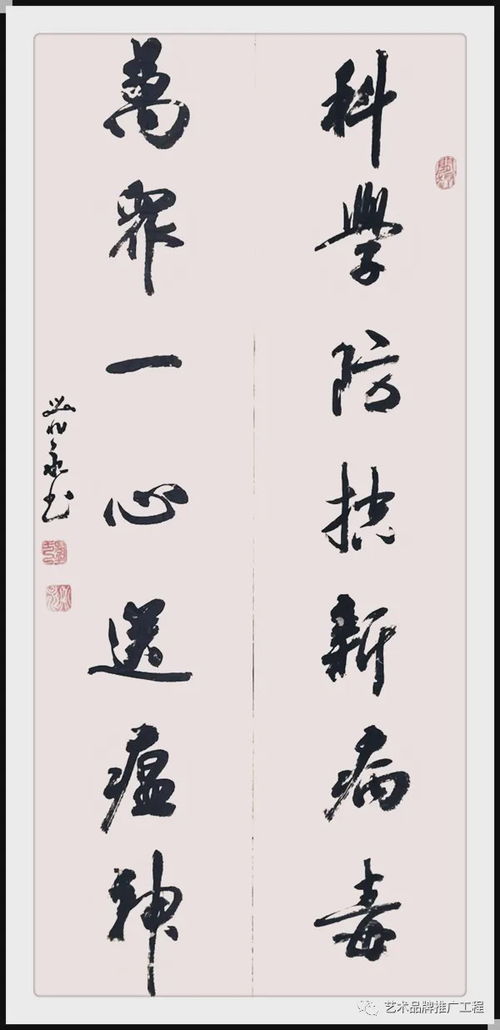 科學防控新病毒
萬眾一心送瘟神
永书
艺术品牌推广工程